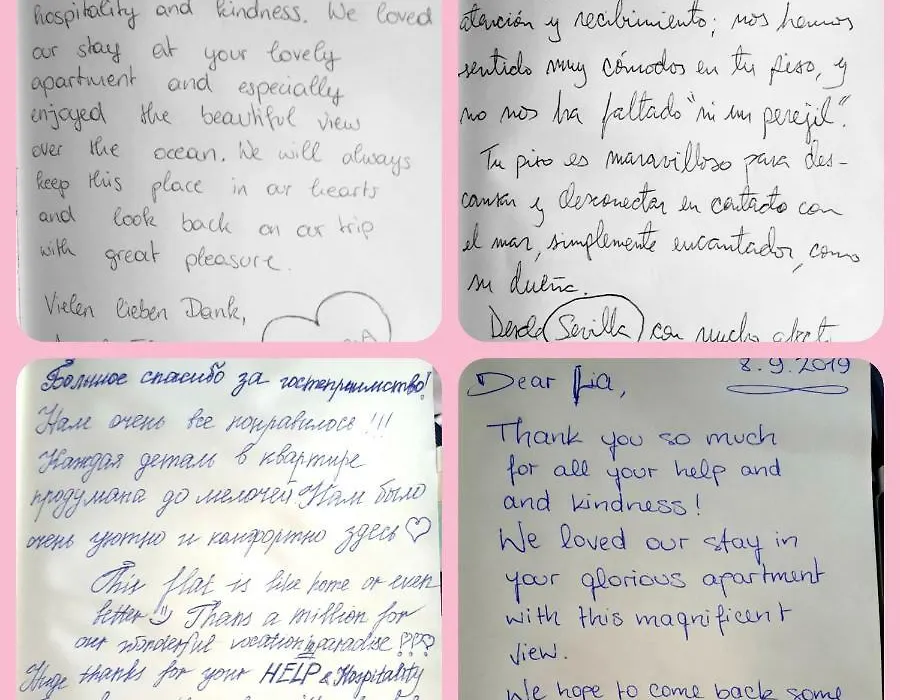 hospitality and kindness. We loved
our stay at your lovely
apartment and especially
enjoyed the beautiful view
over the ocean. We will always
keep this place in our hearts
and look back on our trip
with great pleasure.
Vielen lieben Dank,
atención y recibimiento; nos hemos
sentido muy cómodos en tu piso, y
no nos ha faltado "ni un perejil".
Tu piso es maravilloso para des-
cansar y desconectar en contacto con
el mar, simplemente encantador, como
su dueña.
Desde Sevilla con mucho
Большое спасибо за гостеприимство!
Нам очень все понравилось!!!
Каждая деталь в квартире
продумана до мелочей! Нам было
очень уютно и комфортно здесь♡
This flat is like home or even
better Thans a million for
our wonderful vacation in paradise
Huge thanks for your HELP & Hospitality
8.9.2019
Dear Lia,
Thank you so much
for all your help and
and kindness!
We loved our stay in
your glorious apartment
with this magnificent
view.
We hope to come back some